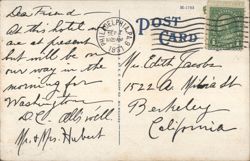 Dear Friend
At this hotel we
are at present
but will be on
our way in the
morning for
Washington
D.C. all well
Mr. & Mrs. Hubert
PHILADELPHIA, PA.
1931
POST
CARD
Mr. Edith Jacobs
1522 A
Berkeley
California